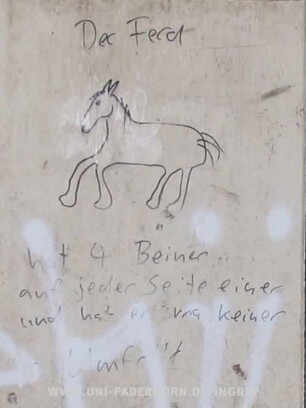 Der Ferd
hat 4 Beiner
auf jeder Seite einer
und hat er mal keiner
Umfällt
WWW.UNI-PADERBORN.DE/INGRID